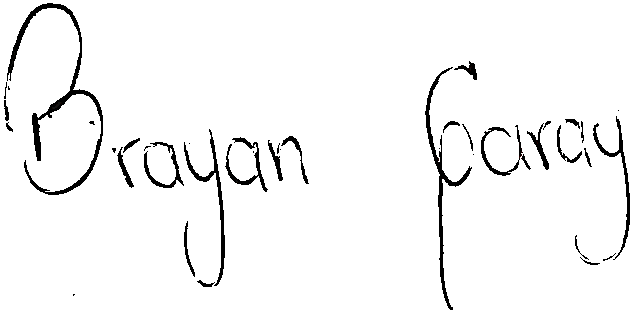 Brayan Garay